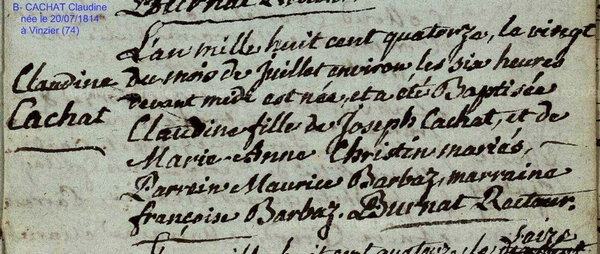 B- CACHAT Claudine
née le 20/07/1814
à Vinzier (74)
Burnat
L'an mille huit cent quatorze, le vingt
du mois de Juillet environ les six heures
devant midi est née, et a été Baptisée
Claudine fille de Joseph Cachat, et de
Marie-Anne Christin mariés,
Parrein Maurice Barbaz, marraine
françoise Barbaz. Burnat Recteur.
Claudine
Cachat
mille huit cent quatorze le seize